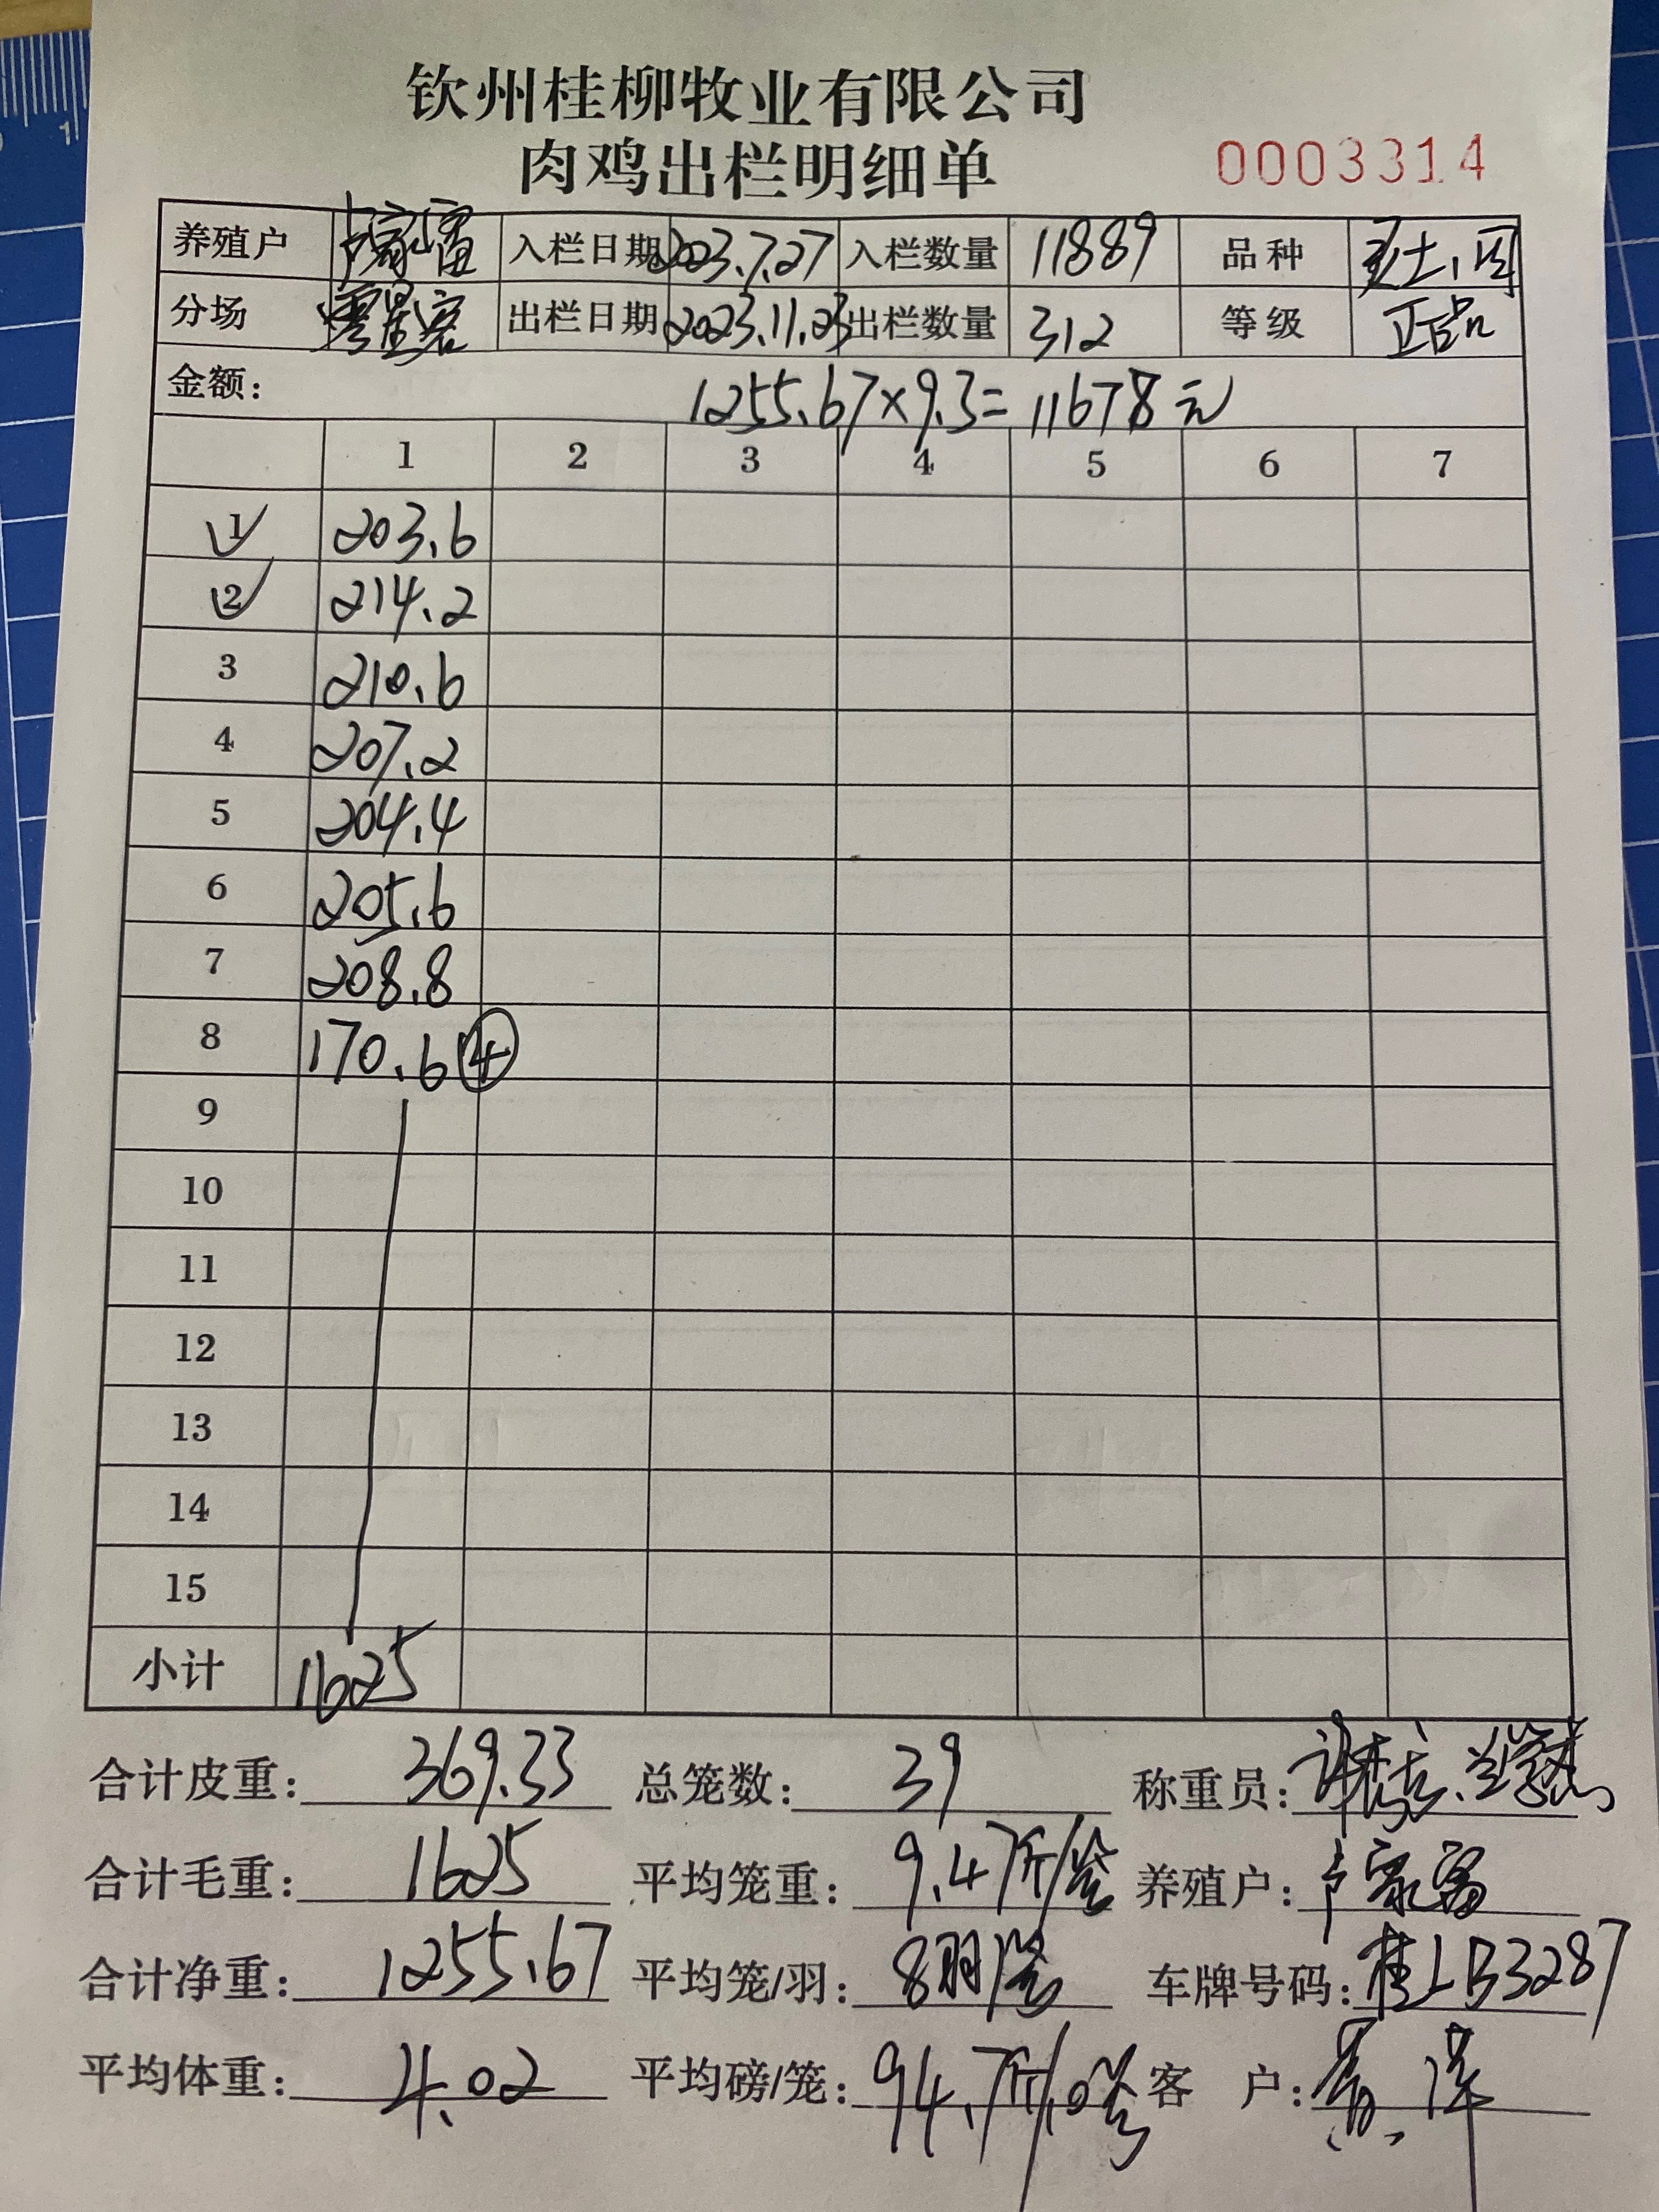 钦州桂柳牧业有限公司
肉鸡出栏明细单 0003314
养殖户 卢家富 入栏日期 2023.7.27 入栏数量 11889 品种
分场 出栏日期 2023.11.23 出栏数量 312 等级 正品
金额: 1255.67×9.3=11678元
1 2 3 4 5 6 7
1 203.6
2 214.2
3 210.6
4 207.2
5 204.4
6 205.6
7 208.8
8 170.6 ④
9
10
11
12
13
14
15
小计 1625
合计皮重: 369.33 总笼数: 39 称重员:
合计毛重: 1625 平均笼重: 9.47斤/笼 养殖户: 卢家富
合计净重: 1255.67 平均笼/羽: 8羽/笼 车牌号码: 桂LB3287
平均体重: 4.02 平均磅/笼: 94.7斤/ 客 户: